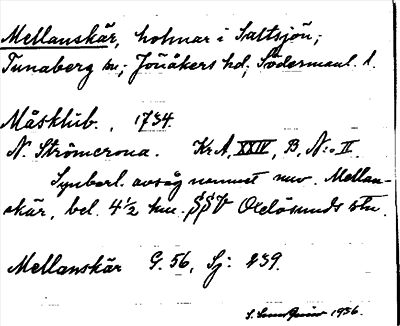 Mellanskär, holmar i Saltsjön;
Tunaberg sn; Jönåkers hd; Södermanl. l.
Måsklub. , 1734.
N. Strömcrona. Kr.A, XXIV, B, N:o II.
Synbarl. avsåg namnet nuv. Mellan-
skär, bel. 4½ km. SSV Oxelösunds stn.
Mellanskär G. 56, Sj: 239.
1936.